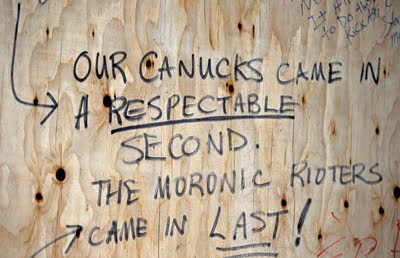 OUR CANUCKS CAME IN
A RESPECTABLE
SECOND.
THE MORONIC RIOTERS
CAME IN LAST!